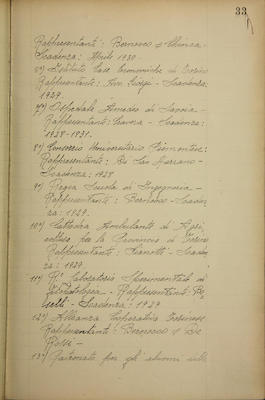 33
Rappresentante: Bernocco d'Allinza -
Scadenza: Aprile 1930
6°) Istituto Case Economiche di Torino
Rappresentante: Avv. - Scadenza:
1929
7°) Ospedale Amedeo di Savoia -
Rappresentante: - Scadenza:
1928-1931.
8°) Consorzio Universitario Piemontese:
Rappresentante: Di San -
Scadenza: 1928
9°) Regia Scuola di Ingegneria -
Rappresentante: - Scaden
za: 1929.
10°) Cattedra Ambulante di Agri
coltura per la Provincia di Torino
Rappresentante: Zanotti - Scaden
za: 1929
11°) R° Laboratorio Sperimentale di
- Rappresentante:
- Scadenza: 1929
12°) Alleanza Cooperativa Torinese
Rappresentanti: Bernocco e De
Rossi -
13°) Patronato per gli alunni